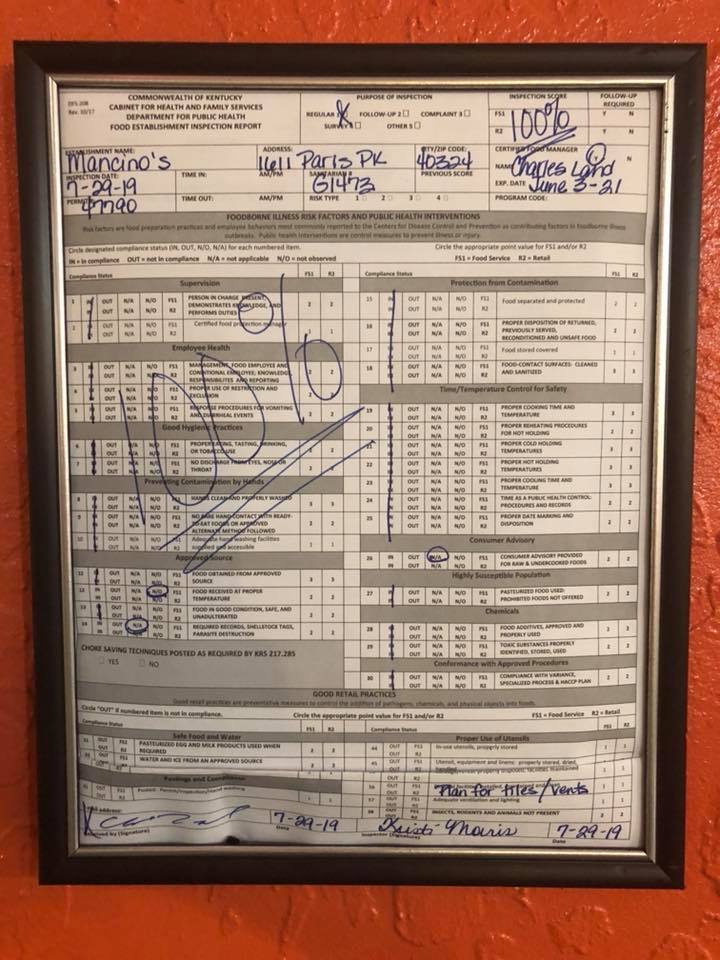 DFS-208
Rev. 10/17
COMMONWEALTH OF KENTUCKY
CABINET FOR HEALTH AND FAMILY SERVICES
DEPARTMENT FOR PUBLIC HEALTH
FOOD ESTABLISHMENT INSPECTION REPORT
PURPOSE OF INSPECTION
REGULAR FOLLOW-UP 2 COMPLAINT 3
SURVEY OTHER 5
INSPECTION SCORE
FS1 100%
R2
FOLLOW-UP
REQUIRED
Y N
Y N
ESTABLISHMENT NAME: Mancino's
ADDRESS: 1611 Paris PK
CITY/ZIP CODE: 40324
CERTIFIED FOOD MANAGER Y N
NAME Charles Land
INSPECTION DATE: 7-29-19
TIME IN: AM/PM
SANITARIAN # G1473
PREVIOUS SCORE
EXP. DATE June 3-21
PERMIT 47790
TIME OUT: AM/PM
RISK TYPE 1 2 3 4
PROGRAM CODE:
FOODBORNE ILLNESS RISK FACTORS AND PUBLIC HEALTH INTERVENTIONS
Risk factors are food preparation practices and employee behaviors most commonly reported to the Centers for Disease Control and Prevention as contributing factors in foodborne illness
outbreaks. Public health interventions are control measures to prevent illness or injury.
Circle designated compliance status (IN, OUT, N/O, N/A) for each numbered item.
Circle the appropriate point value for FS1 and/or R2
IN = in compliance OUT = not in compliance N/A = not applicable N/O = not observed
FS1 = Food Service R2 = Retail
Compliance Status FS1 R2
Supervision
1 IN OUT N/A N/O FS1 PERSON IN CHARGE PRESENT, DEMONSTRATES KNOWLEDGE, AND PERFORMS DUTIES 2 2
2 Certified food protection manager 1 1
Employee Health
3 MANAGEMENT, FOOD EMPLOYEE AND CONDITIONAL EMPLOYEE; KNOWLEDGE, RESPONSIBILITES AND REPORTING
4 PROPER USE OF RESTRICTION AND EXCLUSION
5 RESPONSE PROCEDURES FOR VOMITING AND DIARRHEAL EVENTS
Good Hygienic Practices
6 PROPER EATING, TASTING, DRINKING, OR TOBACCO USE
7 NO DISCHARGE FROM EYES, NOSE OR THROAT
Preventing Contamination by Hands
8 HANDS CLEAN AND PROPERLY WASHED
9 NO BARE HAND CONTACT WITH READY-TO-EAT FOODS OR APPROVED ALTERNATE METHOD FOLLOWED
10 Adequate hand washing facilities supplied and accessible 1 1
Approved Source
11 FOOD OBTAINED FROM APPROVED SOURCE 3 3
12 FOOD RECEIVED AT PROPER TEMPERATURE
13 FOOD IN GOOD CONDITION, SAFE, AND UNADULTERATED
14 REQUIRED RECORDS, SHELLSTOCK TAGS, PARASITE DESTRUCTION
100%
CHOKE SAVING TECHNIQUES POSTED AS REQUIRED BY KRS 217.285
YES NO
Compliance Status FS1 R2
Protection from Contamination
15 Food separated and protected 2 2
16 PROPER DISPOSITION OF RETURNED, PREVIOUSLY SERVED, RECONDITIONED AND UNSAFE FOOD 2 2
17 Food stored covered 1 1
18 FOOD-CONTACT SURFACES: CLEANED AND SANITIZED 3 3
Time/Temperature Control for Safety
19 PROPER COOKING TIME AND TEMPERATURE 3 3
20 PROPER REHEATING PROCEDURES FOR HOT HOLDING 2 2
21 PROPER COLD HOLDING TEMPERATURES 3 3
22 PROPER HOT HOLDING TEMPERATURES 3 3
23 PROPER COOLING TIME AND TEMPERATURE 3 3
24 TIME AS A PUBLIC HEALTH CONTROL: PROCEDURES AND RECORDS 2 2
25 PROPER DATE MARKING AND DISPOSITION 2 2
Consumer Advisory
26 CONSUMER ADVISORY PROVIDED FOR RAW & UNDERCOOKED FOODS
Highly Susceptible Population
27 PASTEURIZED FOOD USED; PROHIBITED FOODS NOT OFFERED
Chemicals
28 FOOD ADDITIVES, APPROVED AND PROPERLY USED
29 TOXIC SUBSTANCES PROPERLY IDENTIFIED, STORED, USED
Conformance with Approved Procedures
30 COMPLIANCE WITH VARIANCE, SPECIALIZED PROCESS & HACCP PLAN 2 2
GOOD RETAIL PRACTICES
Good retail practices are preventative measures to control the addition of pathogens, chemicals, and physical objects into foods.
Circle "OUT" if numbered item is not in compliance.
Circle the appropriate point value for FS1 and/or R2
FS1 = Food Service R2 = Retail
Compliance Status FS1 R2
Safe Food and Water
31 PASTEURIZED EGG AND MILK PRODUCTS USED WHEN REQUIRED 2 2
WATER AND ICE FROM AN APPROVED SOURCE 2 2
Proper Use of Utensils
44 In-use utensils, properly stored 1 1
45 Utensil, equipment and linens: properly stored, dried,
Plan for tiles/vents
Adequate ventilation and lighting
INSECTS, RODENTS AND ANIMALS NOT PRESENT
Received by (Signature)
7-29-19
Date
Kristi Morris
Inspector (Signature)
7-29-19
Date